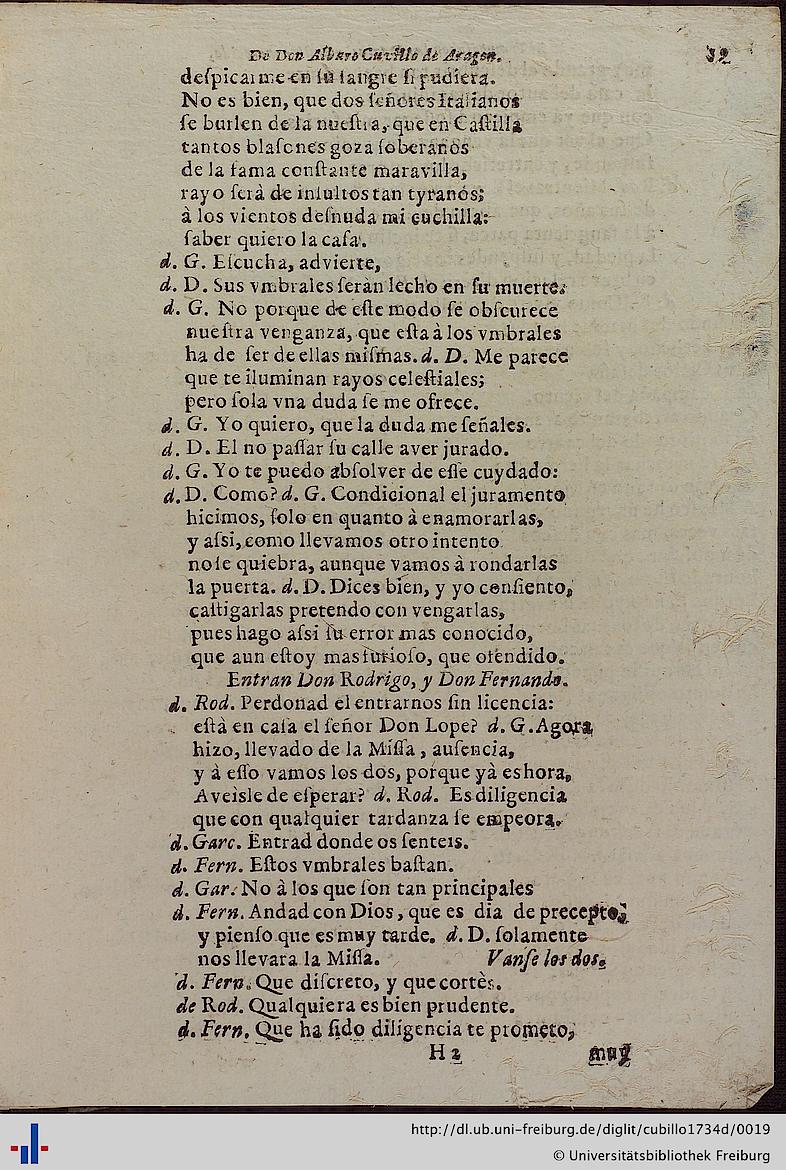 De Don Albaro Cuvillo de Aragon. 32
deſpicarme en ſu ſangre ſi pudiera.
No es bien, que dos ſeñores Italianos
ſe burlen de la nueſtra, que en Caſtilla
tantos blaſones goza ſoberanos
de la fama conſtante maravilla,
rayo ſerà de inſultos tan tyranos;
à los vientos deſnuda mi cuchilla:
ſaber quiero la caſa.
d. G. Eſcucha, advierte,
d. D. Sus vmbrales ſeràn lecho en ſu muerte.
d. G. No porque de eſte modo ſe obſcurece
nueſtra venganza, que eſta à los vmbrales
ha de ſer de ellas miſmas. d. D. Me parece
que te iluminan rayos celeſtiales;
pero ſola vna duda ſe me ofrece.
d. G. Yo quiero, que la duda me ſeñales.
d. D. El no paſſar ſu calle aver jurado.
d. G. Yo te puedo abſolver de eſſe cuydado:
d. D. Como? d. G. Condicional el juramento
hicimos, ſolo en quanto à enamorarlas,
y aſsi, como llevamos otro intento
no ſe quiebra, aunque vamos à rondarlas
la puerta. d. D. Dices bien, y yo conſiento,
caſtigarlas pretendo con vengarlas,
pues hago aſsi ſu error mas conocido,
que aun eſtoy mas furioſo, que ofendido.
Entran Don Rodrigo, y Don Fernando.
d. Rod. Perdonad el entrarnos ſin licencia:
eſtà en caſa el ſeñor Don Lope? d. G. Agora
hizo, llevado de la Miſſa, auſencia,
y à eſſo vamos los dos, porque yà es hora,
Aveisle de eſperar? d. Rod. Es diligencia
que con qualquier tardanza ſe empeora.
d. Garc. Entrad donde os ſenteis.
d. Fern. Eſtos vmbrales baſtan.
d. Gar. No à los que ſon tan principales
d. Fern. Andad con Dios, que es dia de precepto;
y pienſo que es muy tarde. d. D. ſolamente
nos llevara la Miſſa. Vanſe los dos.
d. Fern. Que diſcreto, y que cortès.
de Rod. Qualquiera es bien prudente.
d. Fern. Que ha ſido diligencia te prometo,
H 2 muy
http://dl.ub.uni-freiburg.de/diglit/cubillo1734d/0019
© Universitätsbibliothek Freiburg